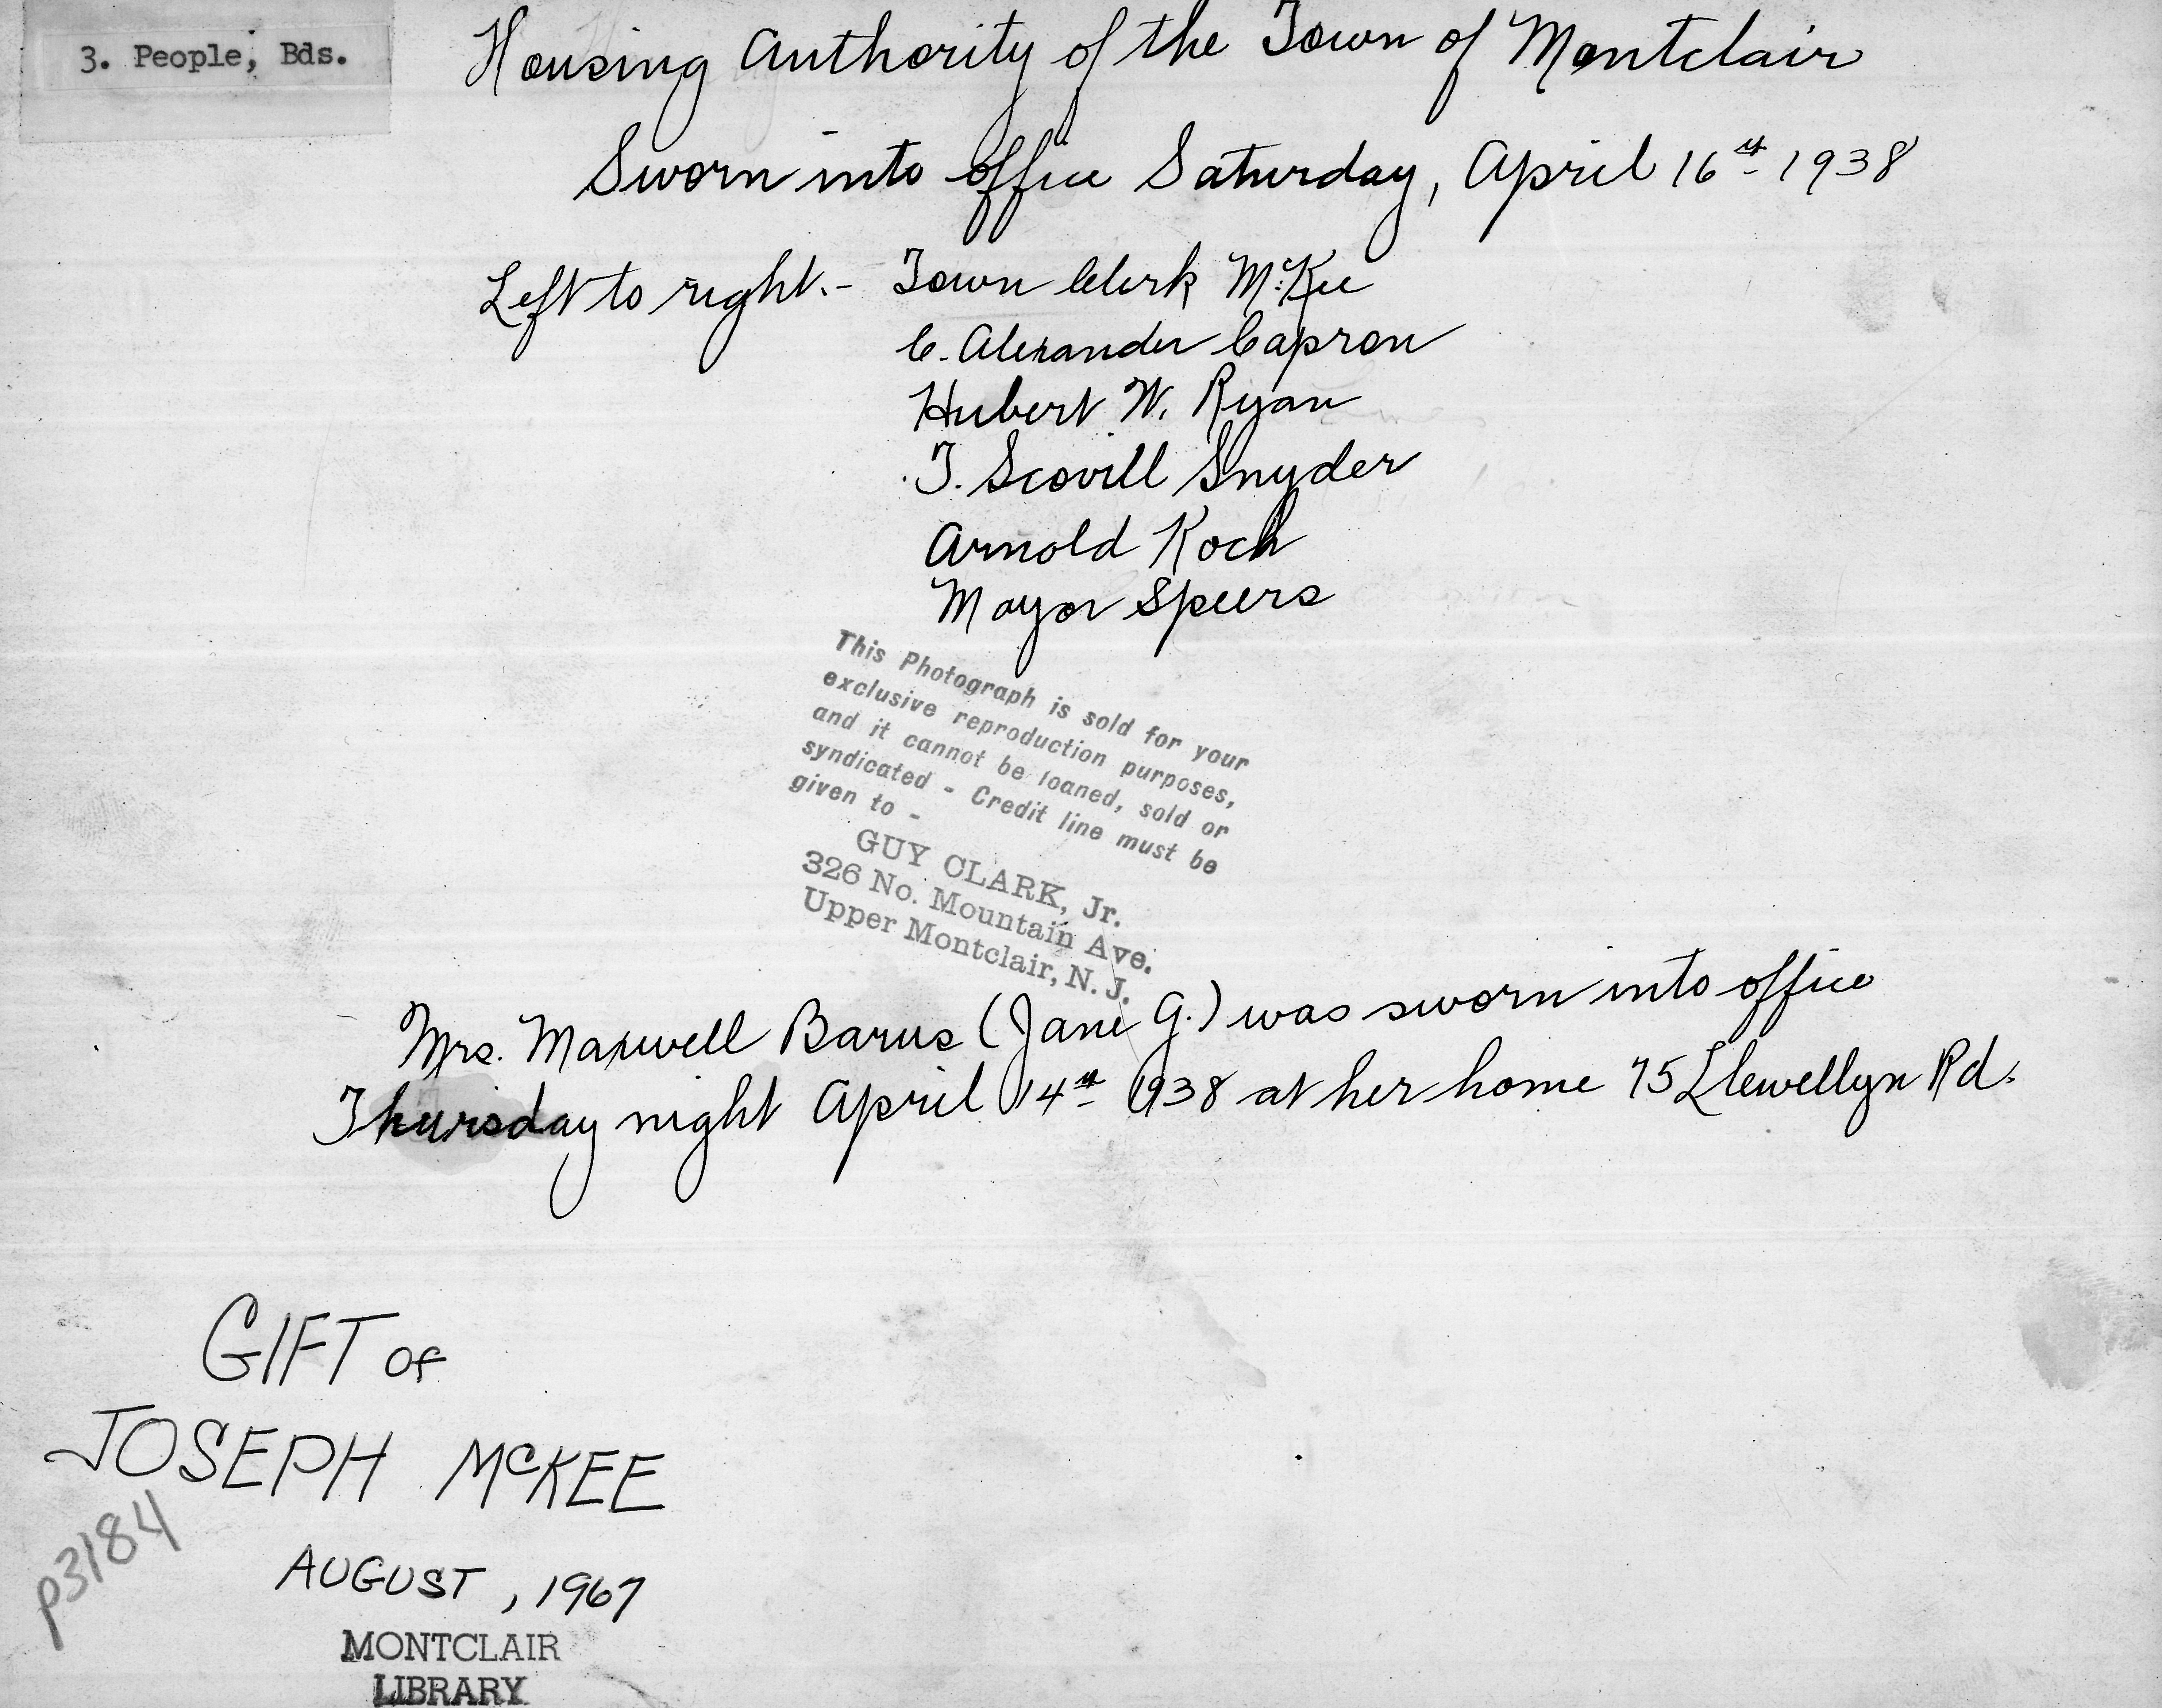 3. People, Bds.
Housing Authority of the Town of Montclair
Sworn into office Saturday, April 16th 1938
Left to right.- Town Clerk McKee
C. Alexander Capron
Hubert W. Ryan
T. Scovill Snyder
Arnold Koch
Mayor Speers
This Photograph is sold for your
exclusive reproduction purposes,
and it cannot be loaned, sold or
syndicated - Credit line must be
given to -
GUY CLARK, Jr.
326 No. Mountain Ave.
Upper Montclair, N. J.
Mrs. Maxwell Barus (Jane G.) was sworn into office
Thursday night April 14th 1938 at her home 75 Llewellyn Rd.
GIFT OF
JOSEPH McKEE
p3184
AUGUST, 1967
MONTCLAIR
LIBRARY